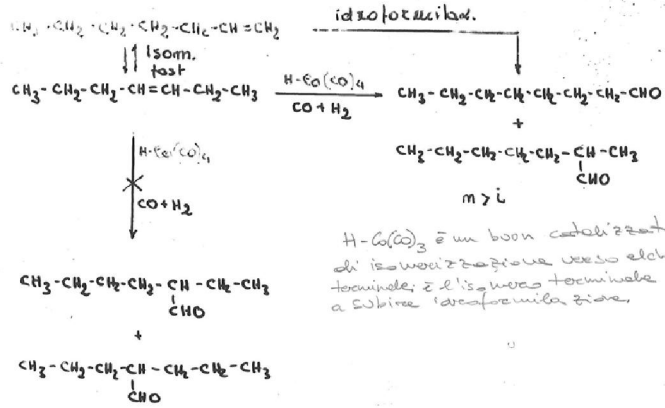 CH₃-CH₂-CH₂-CH₂-CH₂-CH=CH₂
idroformilaz.
Isom.
fast
CH₃-CH₂-CH₂-CH=CH-CH₂-CH₃
H-Co(CO)₄
CO+H₂
CH₃-CH₂-CH₂-CH₂-CH₂-CH₂-CH₂-CHO
+
CH₃-CH₂-CH₂-CH₂-CH₂-CH-CH₃
CHO
n > i
H-Co(CO)₄
CO+H₂
H-Co(CO)₃ è un buon catalizzat
di isomerizzazione verso
terminale; è l'isomero terminale
a subire idroformilazione.
CH₃-CH₂-CH₂-CH₂-CH-CH₂-CH₃
CHO
+
CH₃-CH₂-CH₂-CH-CH₂-CH₂-CH₃
CHO